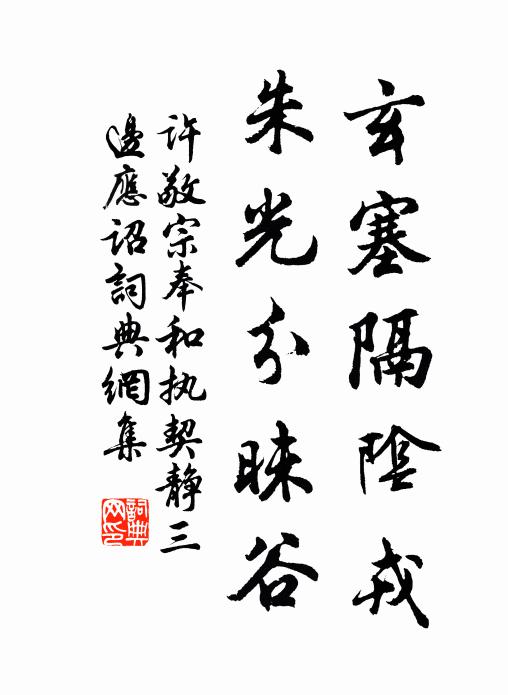 玄塞隔陰戎
朱光分昧谷
许敬宗奉和执契靜三
邊應詔詞典網集
詞典
网印